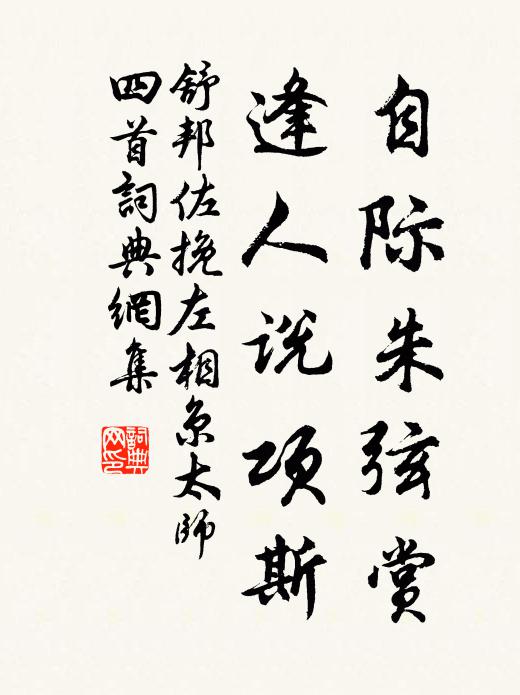 自际朱弦赏
逢人说项斯
舒邦佐挽左相京太师
四首詞典網集
詞典网印